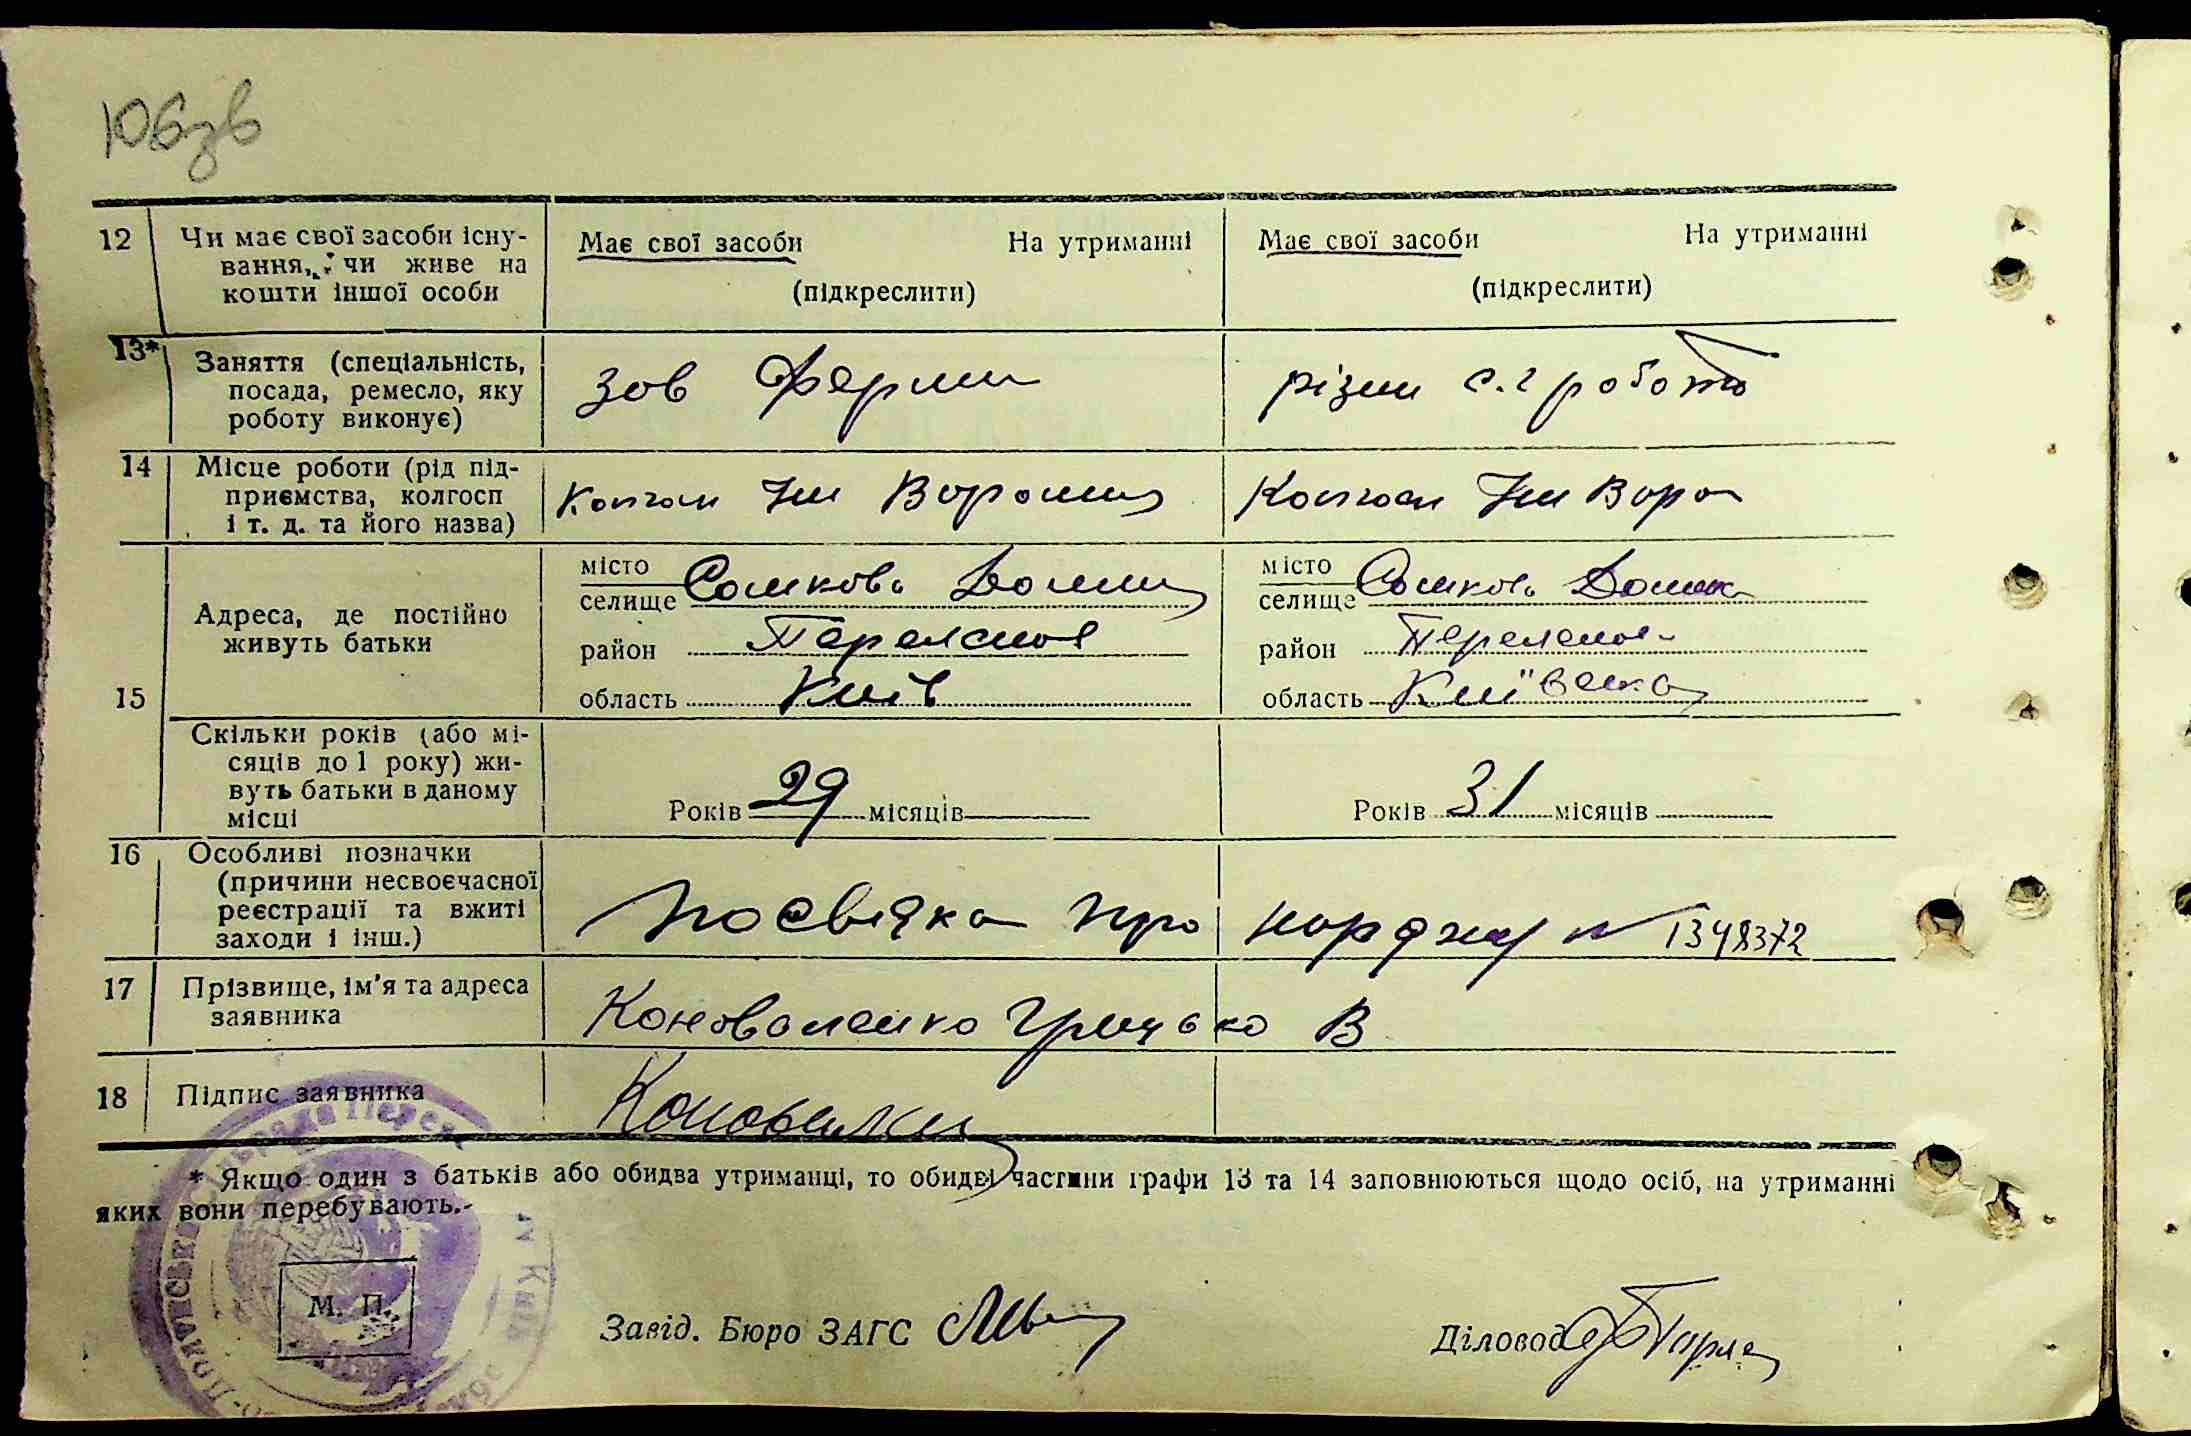 106зв
12 Чи має свої засоби існу- Має свої засоби На утриманні Має свої засоби На утриманні
вання, чи живе на
кошти іншої особи (підкреслити) (підкреслити)
13* Заняття (спеціальність,
посада, ремесло, яку Зав Ферми різни с.г робота
роботу виконує)
14 Місце роботи (рід під-
приємства, колгосп Колгосп Ім Ворошил Колгосп Ім Воро
і т. д. та його назва)
місто місто
селище Сошкова Долина селище Сошкова Долина
Адреса, де постійно
живуть батьки район Переяслов район Переяслов
15 область Київ область Київська
Скільки років (або мі-
сяців до 1 року) жи-
вуть батьки в даному Років 29 місяців Років 31 місяців
місці
16 Особливі позначки
(причини несвоєчасної
реєстрації та вжиті Посвідка про народжен N 1348372
заходи і інш.)
17 Прізвище, ім'я та адреса Коноваленко Грицько В
заявника
18 Підпис заявника Коновален
* Якщо один з батьків або обидва утриманці, то обидві частини графи 13 та 14 заповнюються щодо осіб, на утриманні
яких вони перебувають.
М. П.
Завід. Бюро ЗАГС Діловод